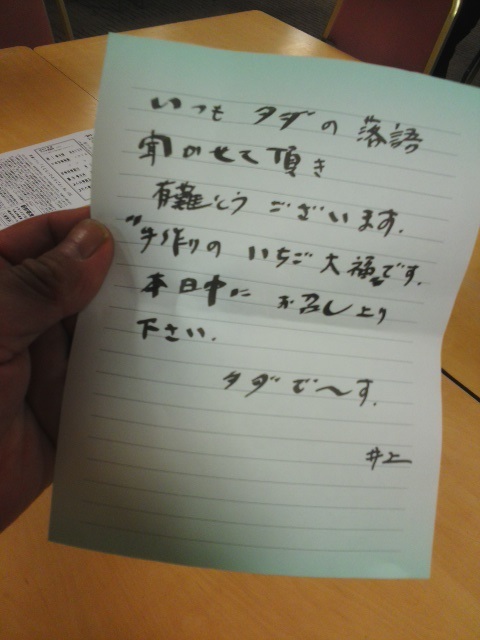 いつも タダの 落語
聞かせて頂き
有難とう ございます.
"手作りの いちご大福"です.
本日中に お召し上り
下さい.
タダで〜す.
井上